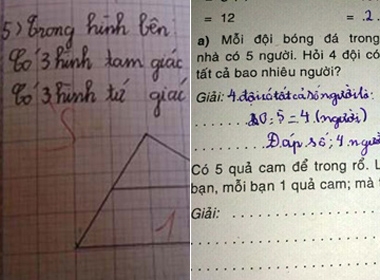 5) Trong hình bên
Có 3 hình tam giác
Có 3 hình tứ giác
S
1
= 12
= 2
a) Mỗi đội bóng đá trong
nhà có 5 người. Hỏi 4 đội có
tất cả bao nhiêu người?
Giải: 4 đội có tất cả số người là:
20 : 5 = 4 (người)
Đáp số: 4 người
Có 5 quả cam để trong rổ. L
bạn, mỗi bạn 1 quả cam; mà
Giải: